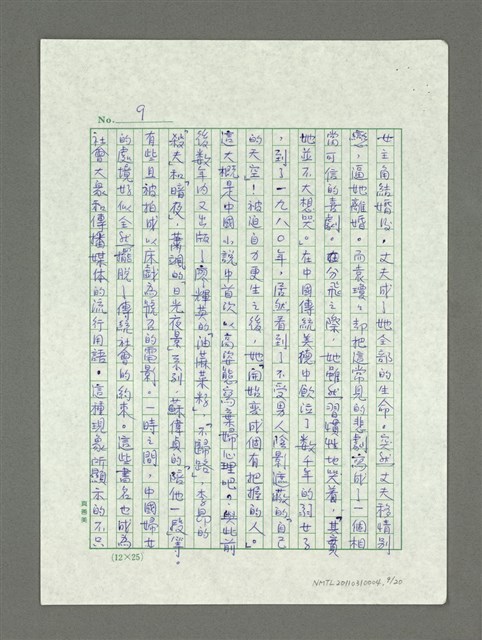 No. 9
女主角結婚後，丈夫成了她全部的生命。突然丈夫移情別
戀，逼她離婚。而袁瓊瓊却把這常見的悲劇寫成了一個相
當可信的喜劇。在分飛之際，她雖然習慣性地哭着，「其實
她並不大想哭。」在中國傳統美德中飲泣了數千年的弱女子
，到了一九八〇年，居然看到了不受男人陰影遮蔽的「自己
的天空」！被迫自力更生之後，她「開始變成個有把握的人」。
這大概是中國小說中首次以高姿態寫棄婦心理吧。與此前
後數年內又出版了廖輝英的「油麻菜籽」，「不歸路」，李昂的
「殺夫」和「暗夜」，蕭颯的「日光夜景」系列，蘇偉貞的「陪他一段」等。
有些且被拍成以床戲為號召的電影。一時之間，中國婦女
的處境好似全然擺脫了傳統社會的約束。這些書名也成為
社會大衆和傳播媒体的流行用語。這種現象所顯示的不只
(12×25)
NMTL20110310004, 9/20